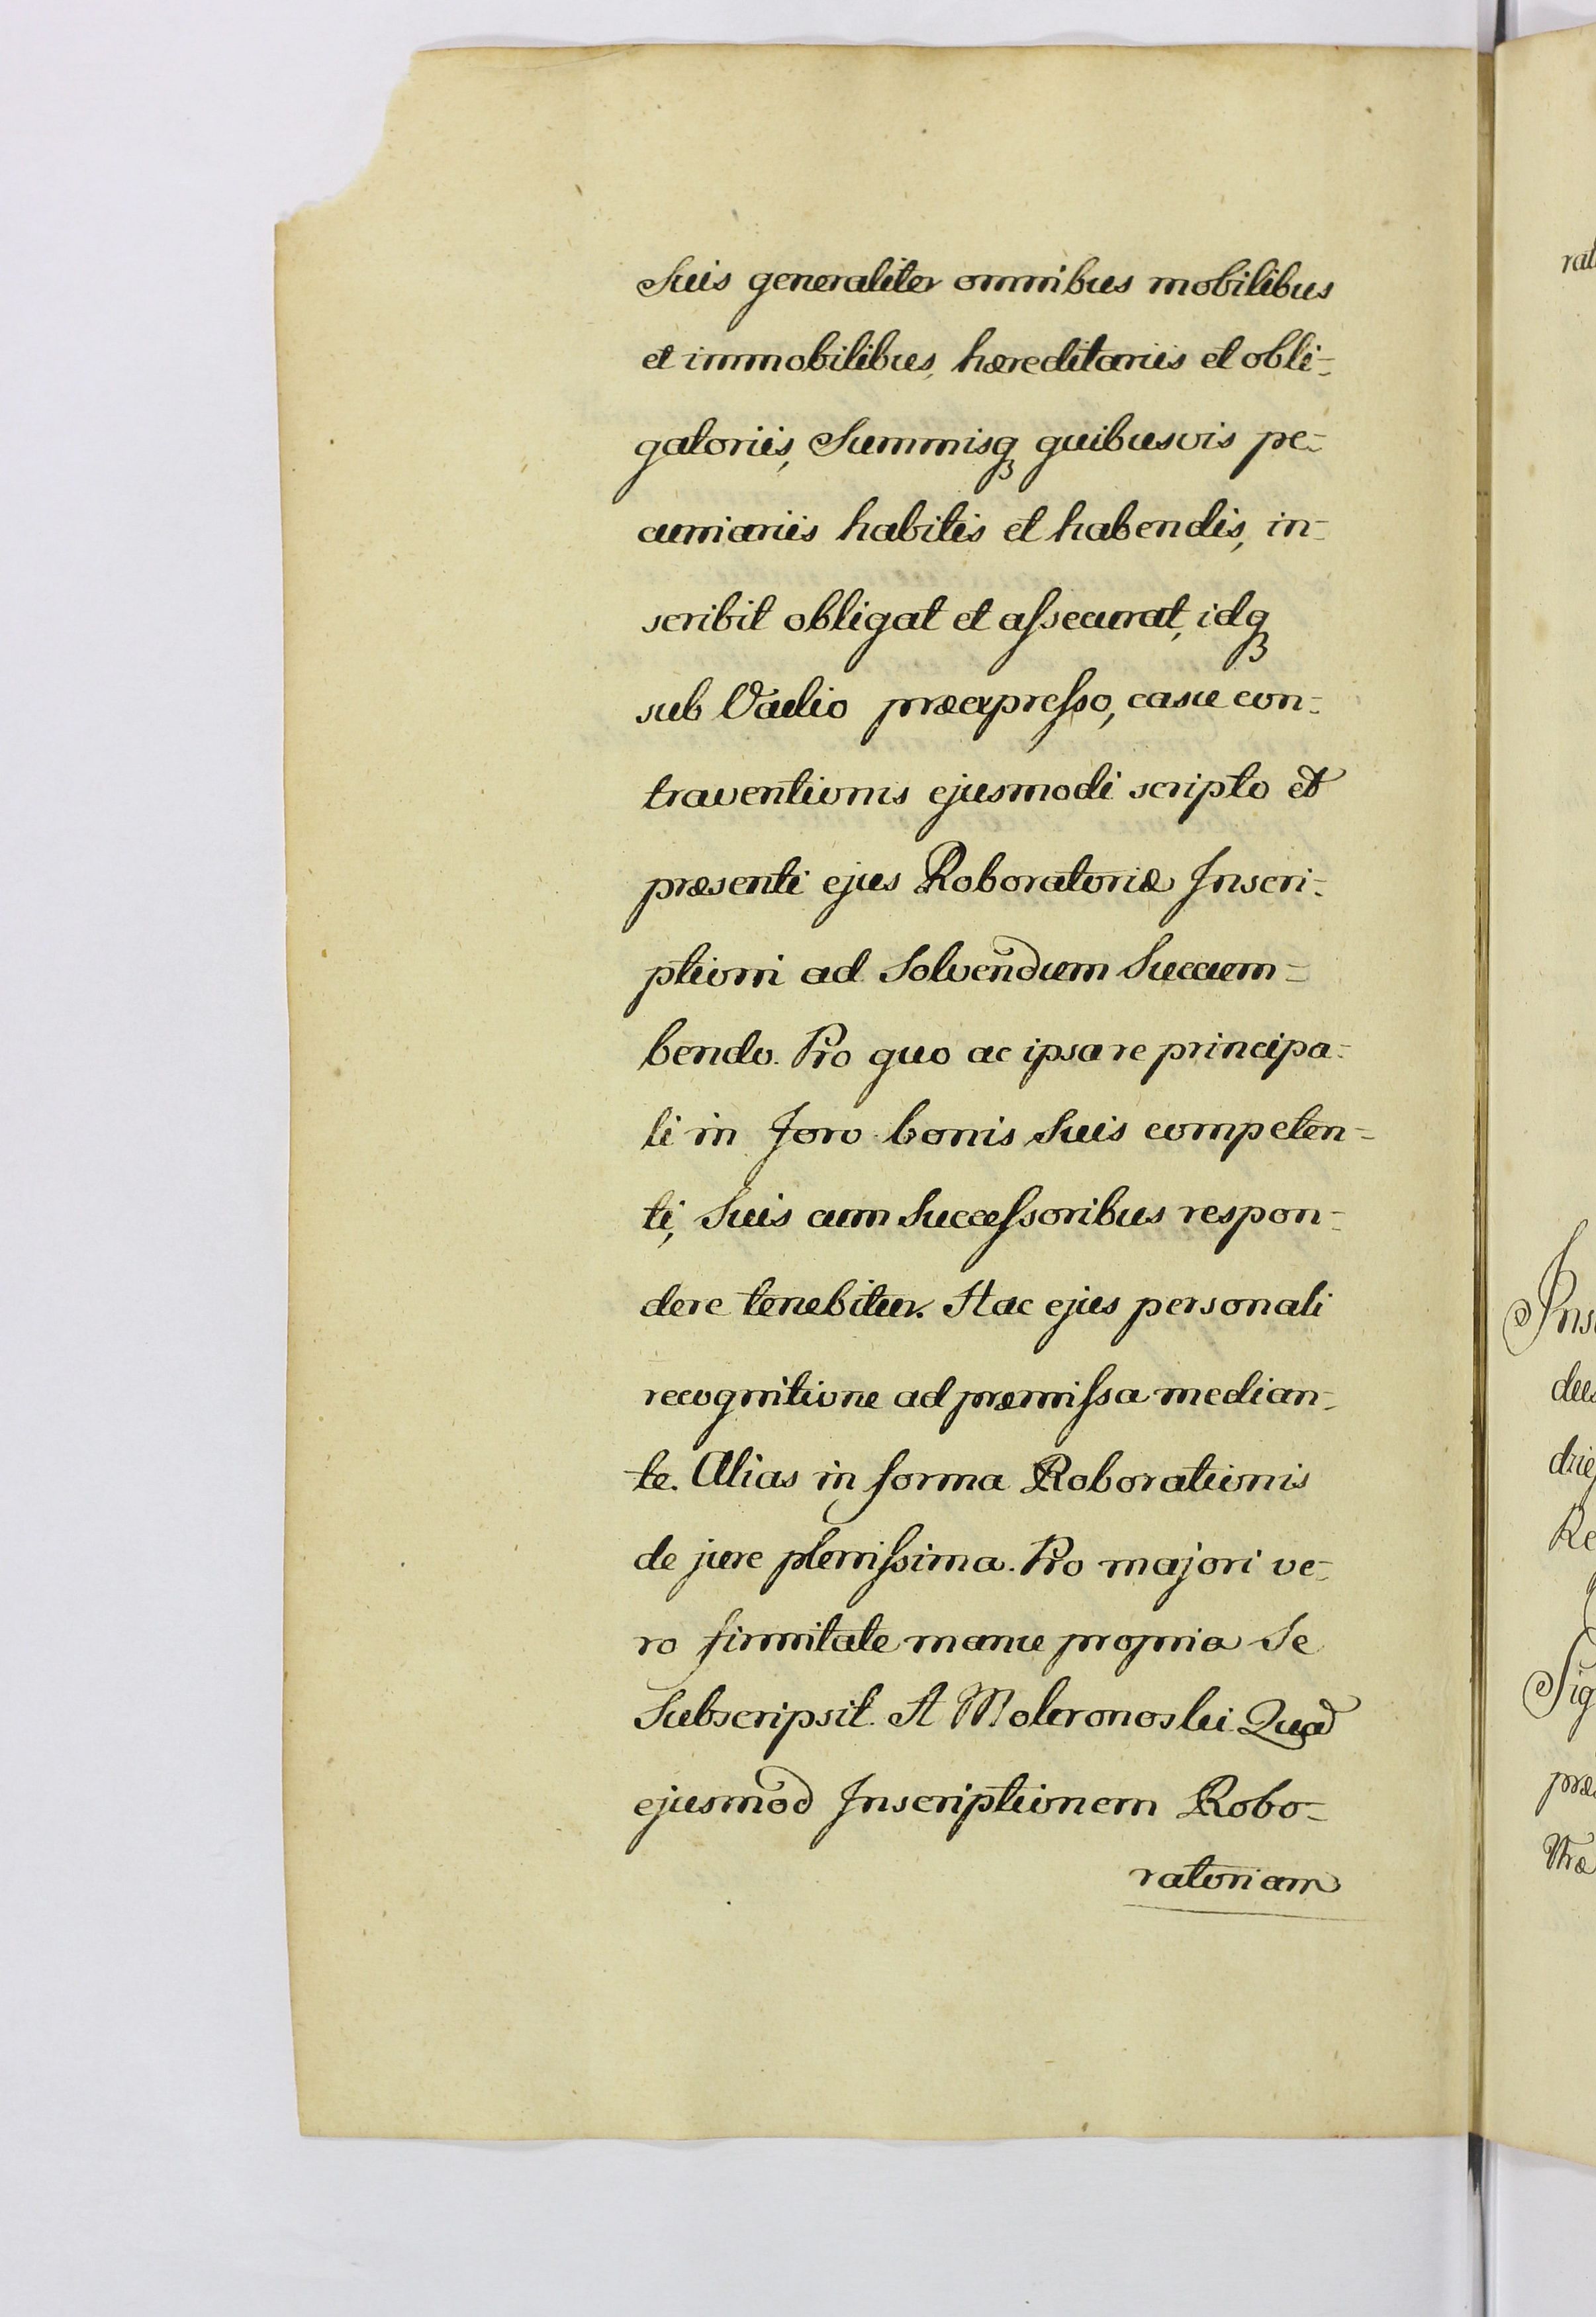 Suis generaliter omnibus mobilibus
et immobilibus, hæreditariis et obli-
gatoriis, Summisq quibusvis pe-
cuniariis habitis et habendis, in-
scribit obligat et aſsecurat, idq
sub Vadio præexpreſso, casu con-
traventionis ejusmodi scripto et
præsenti ejus Roboratoriæ Inscri-
ptioni ad Solvendum Succum-
bendo. Pro quo ac ipsa re principa-
li in Foro bonis Suis competen-
ti, Suis cum Succeſsoribus respon-
dere tenebitur. Hac ejus personali
recognitione ad præmiſsa median-
te. Alias in forma Roborationis
de jure pleniſsima. Pro majori ve-
ro firmitate manu propria Se
Subscripsit. A Mokronoski Quod
ejusmod Inscriptionem Robo-
ratoriam
rat
Ins
Re
Sig
præ